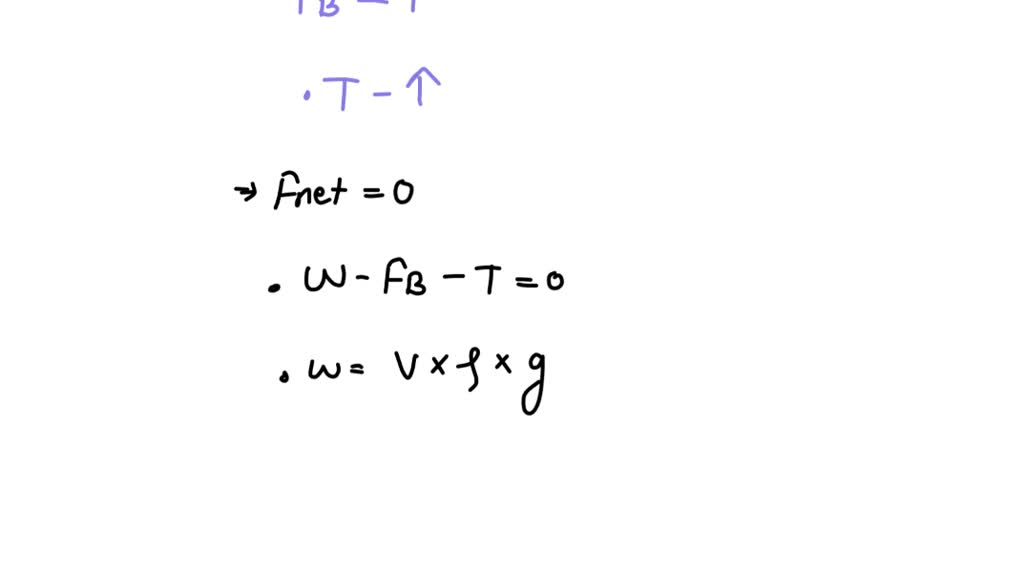 FB - ↑
. T - ↑
→ Fnet = 0
. W - FB - T = 0
. W = V × ρ × g